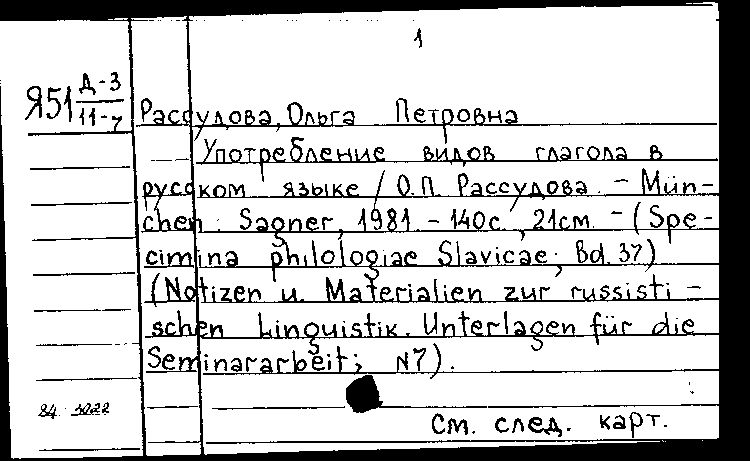 1
Я51 Д-3
11-7
Рассудова, Ольга Петровна
Употребление видов глагола в
русском языке / О.П. Рассудова. – Mün-
chen: Sagner, 1981 – 140с., 21см – (Spe-
cimina philologiae Slavicae; Bd. 37)
(Notizen u. Materialien zur russisti-
schen Linguistik. Unterlagen für die
Seminararbeit; N7).
См. след. карт.